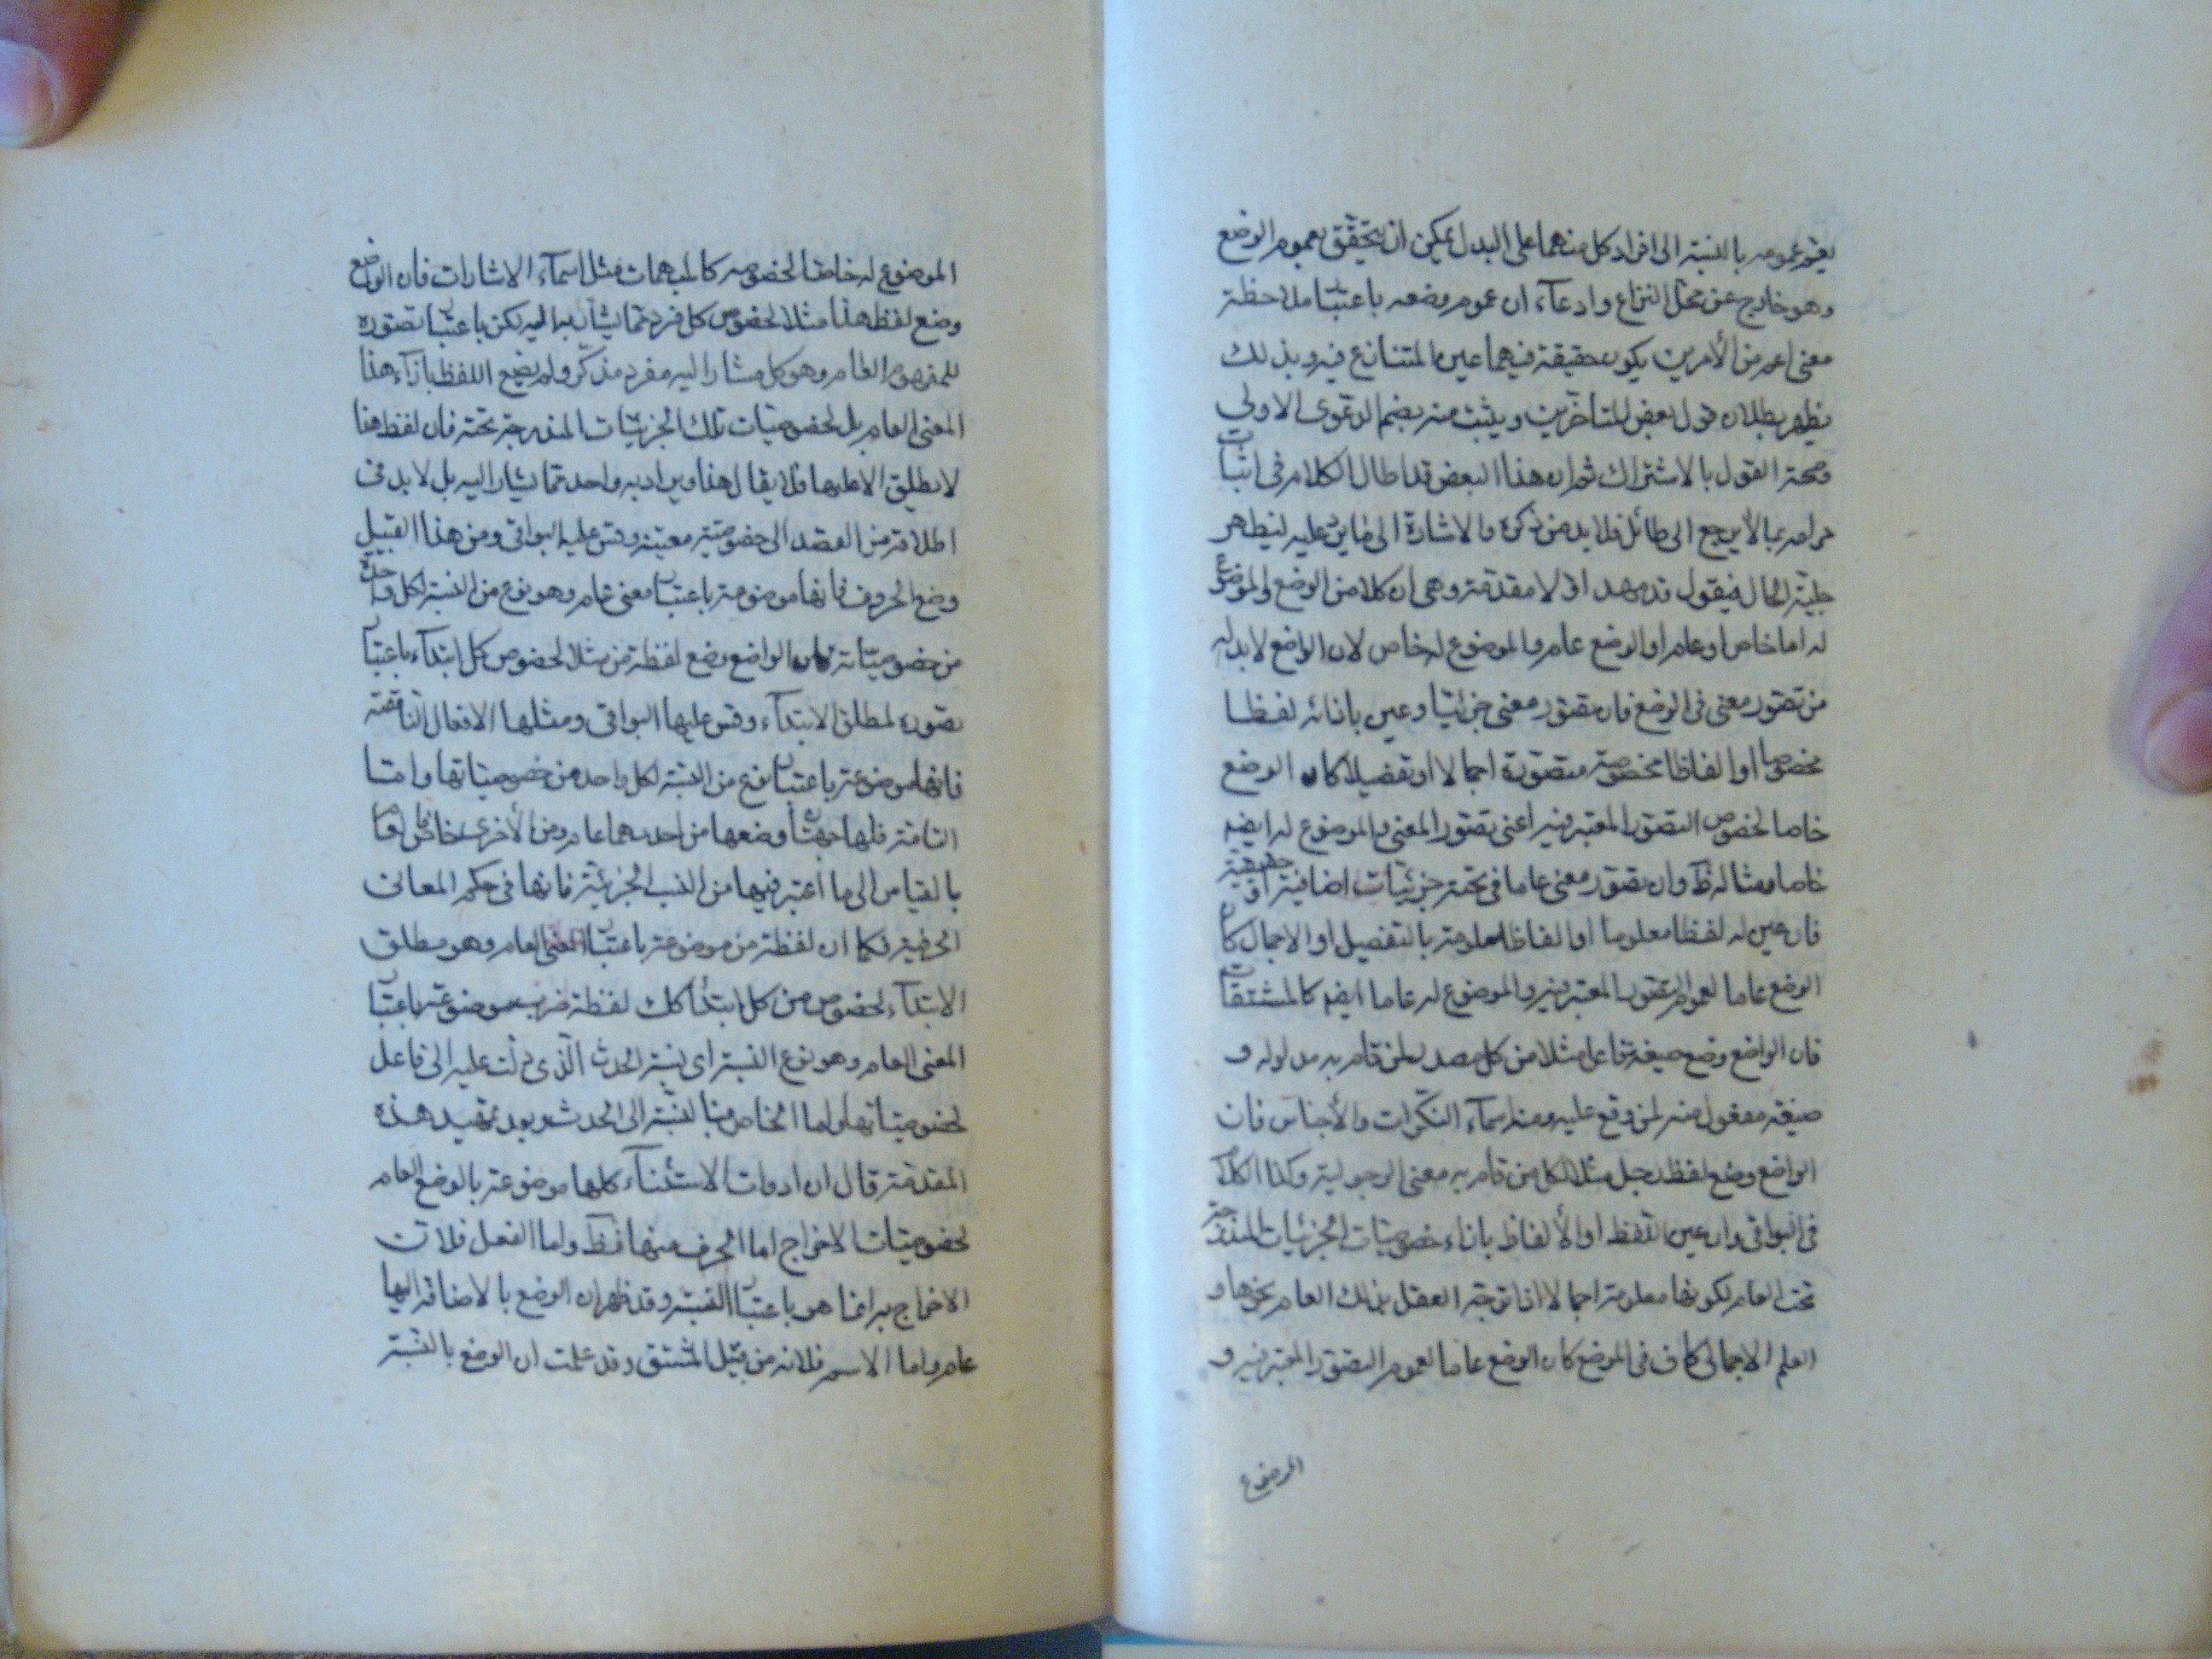 يعتبر عمومه بالنسبة الى افراد كل منهما على البدل يمكن ان يتحقق بعموم الوضع
وهو خارج عن محل النزاع وادعاء ان عموم وضعه باعتبار ملاحظة
معنى اعم من الأمرين يكون حقيقة فيهما عين المتنازع فيه وبذلك
يظهر بطلان قول بعض المتأخرين ويثبت منه بضم الدعوى الاولى
وصحة القول بالاشتراك ثم ان هذا البعض قد اطال الكلام في اثبات
مرامه بما لا يرجع الى طائل فلا بد من ذكره والاشارة الى ما يرد عليه ليظهر
جلية الحال فيقول قد مهد اولا مقدمة وهي ان كلا من الوضع والموضوع
له اما خاص او عام او الوضع عام والموضوع له خاص لان الواضع لا بد له
من تصور معنى في الوضع فان تصور معنى جزئيا وعين بازائه لفظا
مخصوصا او الفاظا مخصوصة متصورة اجمالا او تفصيلا كان الوضع
خاصا لخصوص التصور المعتبر فيه اعني تصور المعنى والموضوع له ايضم
خاصا ومثاله ظ وان تصور معنى عاما في تحته جزئيات اضافية او حقيقية
فان عين له لفظا معلوما او الفاظا معلومة بالتفصيل او الاجمال كان
الوضع عاما لعموم التصور المعتبر فيه والموضوع له عاما ايضم كالمشتقات
فان الواضع وضع صيغة فاعل مثلا من كل مصدر لمن قام به مدلوله و
صيغة مفعول منه لمن وقع عليه ومنه اسماء النكرات والأجناس فان
الواضع وضع لفظ رجل مثلا لكل من قام به معنى الرجولية وكذا الكلام
في البواقي وان عين اللفظ او الألفاظ بازاء خصوصيات الجزئيات المندرجة
تحت العام لكونها معلومة اجمالا اذا توجه العقل بذلك العام نحوها و
العلم الاجمالي كاف في الوضع كان الوضع عاما لعموم التصور المعتبر فيه و
الموضوع
الموضوع له خاصا لخصوصه كالمبهمات مثل اسماء الاشارات فان الواضع
وضع لفظ هذا مثلا لخصوص كل فرد مما يشار به اليه لكن باعتبار تصوره
للمفهوم العام وهو كل مشار اليه مفرد مذكر ولم يضع اللفظ بازاء هذا
المعنى العام بل لخصوصيات تلك الجزئيات المندرجة تحته فان لفظ هذا
لا يطلق الا عليها فلا يقال هذا ويراد به واحد مما يشار اليه بل لا بد في
اطلاقه من القصد الى خصوصية معينة وقس عليه البواقي ومن هذا القبيل
وضع الحروف فانها موضوعة باعتبار معنى عام وهو نوع من النسبة لكل واحدة
من خصوصياته فان الواضع وضع لفظة من مثلا لخصوص كل ابتداء باعتبار
تصوره لمطلق الابتداء وقس عليها البواقي ومثلها الافعال الناقصة
فانها موضوعة باعتبار نوع من النسبة لكل واحد من خصوصياتها واما
التامة فلها جهتان وضعها من احديهما عام ومن الأخرى خاص اما
بالقياس الى ما اعتبر فيها من النسب الجزئية فانها في حكم المعاني
الحرفية فكما ان لفظة من موضوعة باعتبار المعنى العام وهو مطلق
الابتداء لخصوص من كل ابتدأ كك لفظة ضرب موضوعة باعتبار
المعنى العام وهو نوع النسبة اى نسبة الحدث الذي دلت عليه الى فاعل
لخصوصياتها واما الخاص فبالنسبة الى الحدث وبعد تمهيد هذه
المقدمة قال ان ادوات الاستثناء كلها موضوعة بالوضع العام
لخصوصيات الاخراج اما الحرف منها فظ واما الفعل فلان
الاخراج به انما هو باعتبار النسبة وقد ظهر ان الوضع بالاضافة اليها
عام واما الاسم فلانه من قبيل المشتق وقد علمت ان الوضع بالنسبة